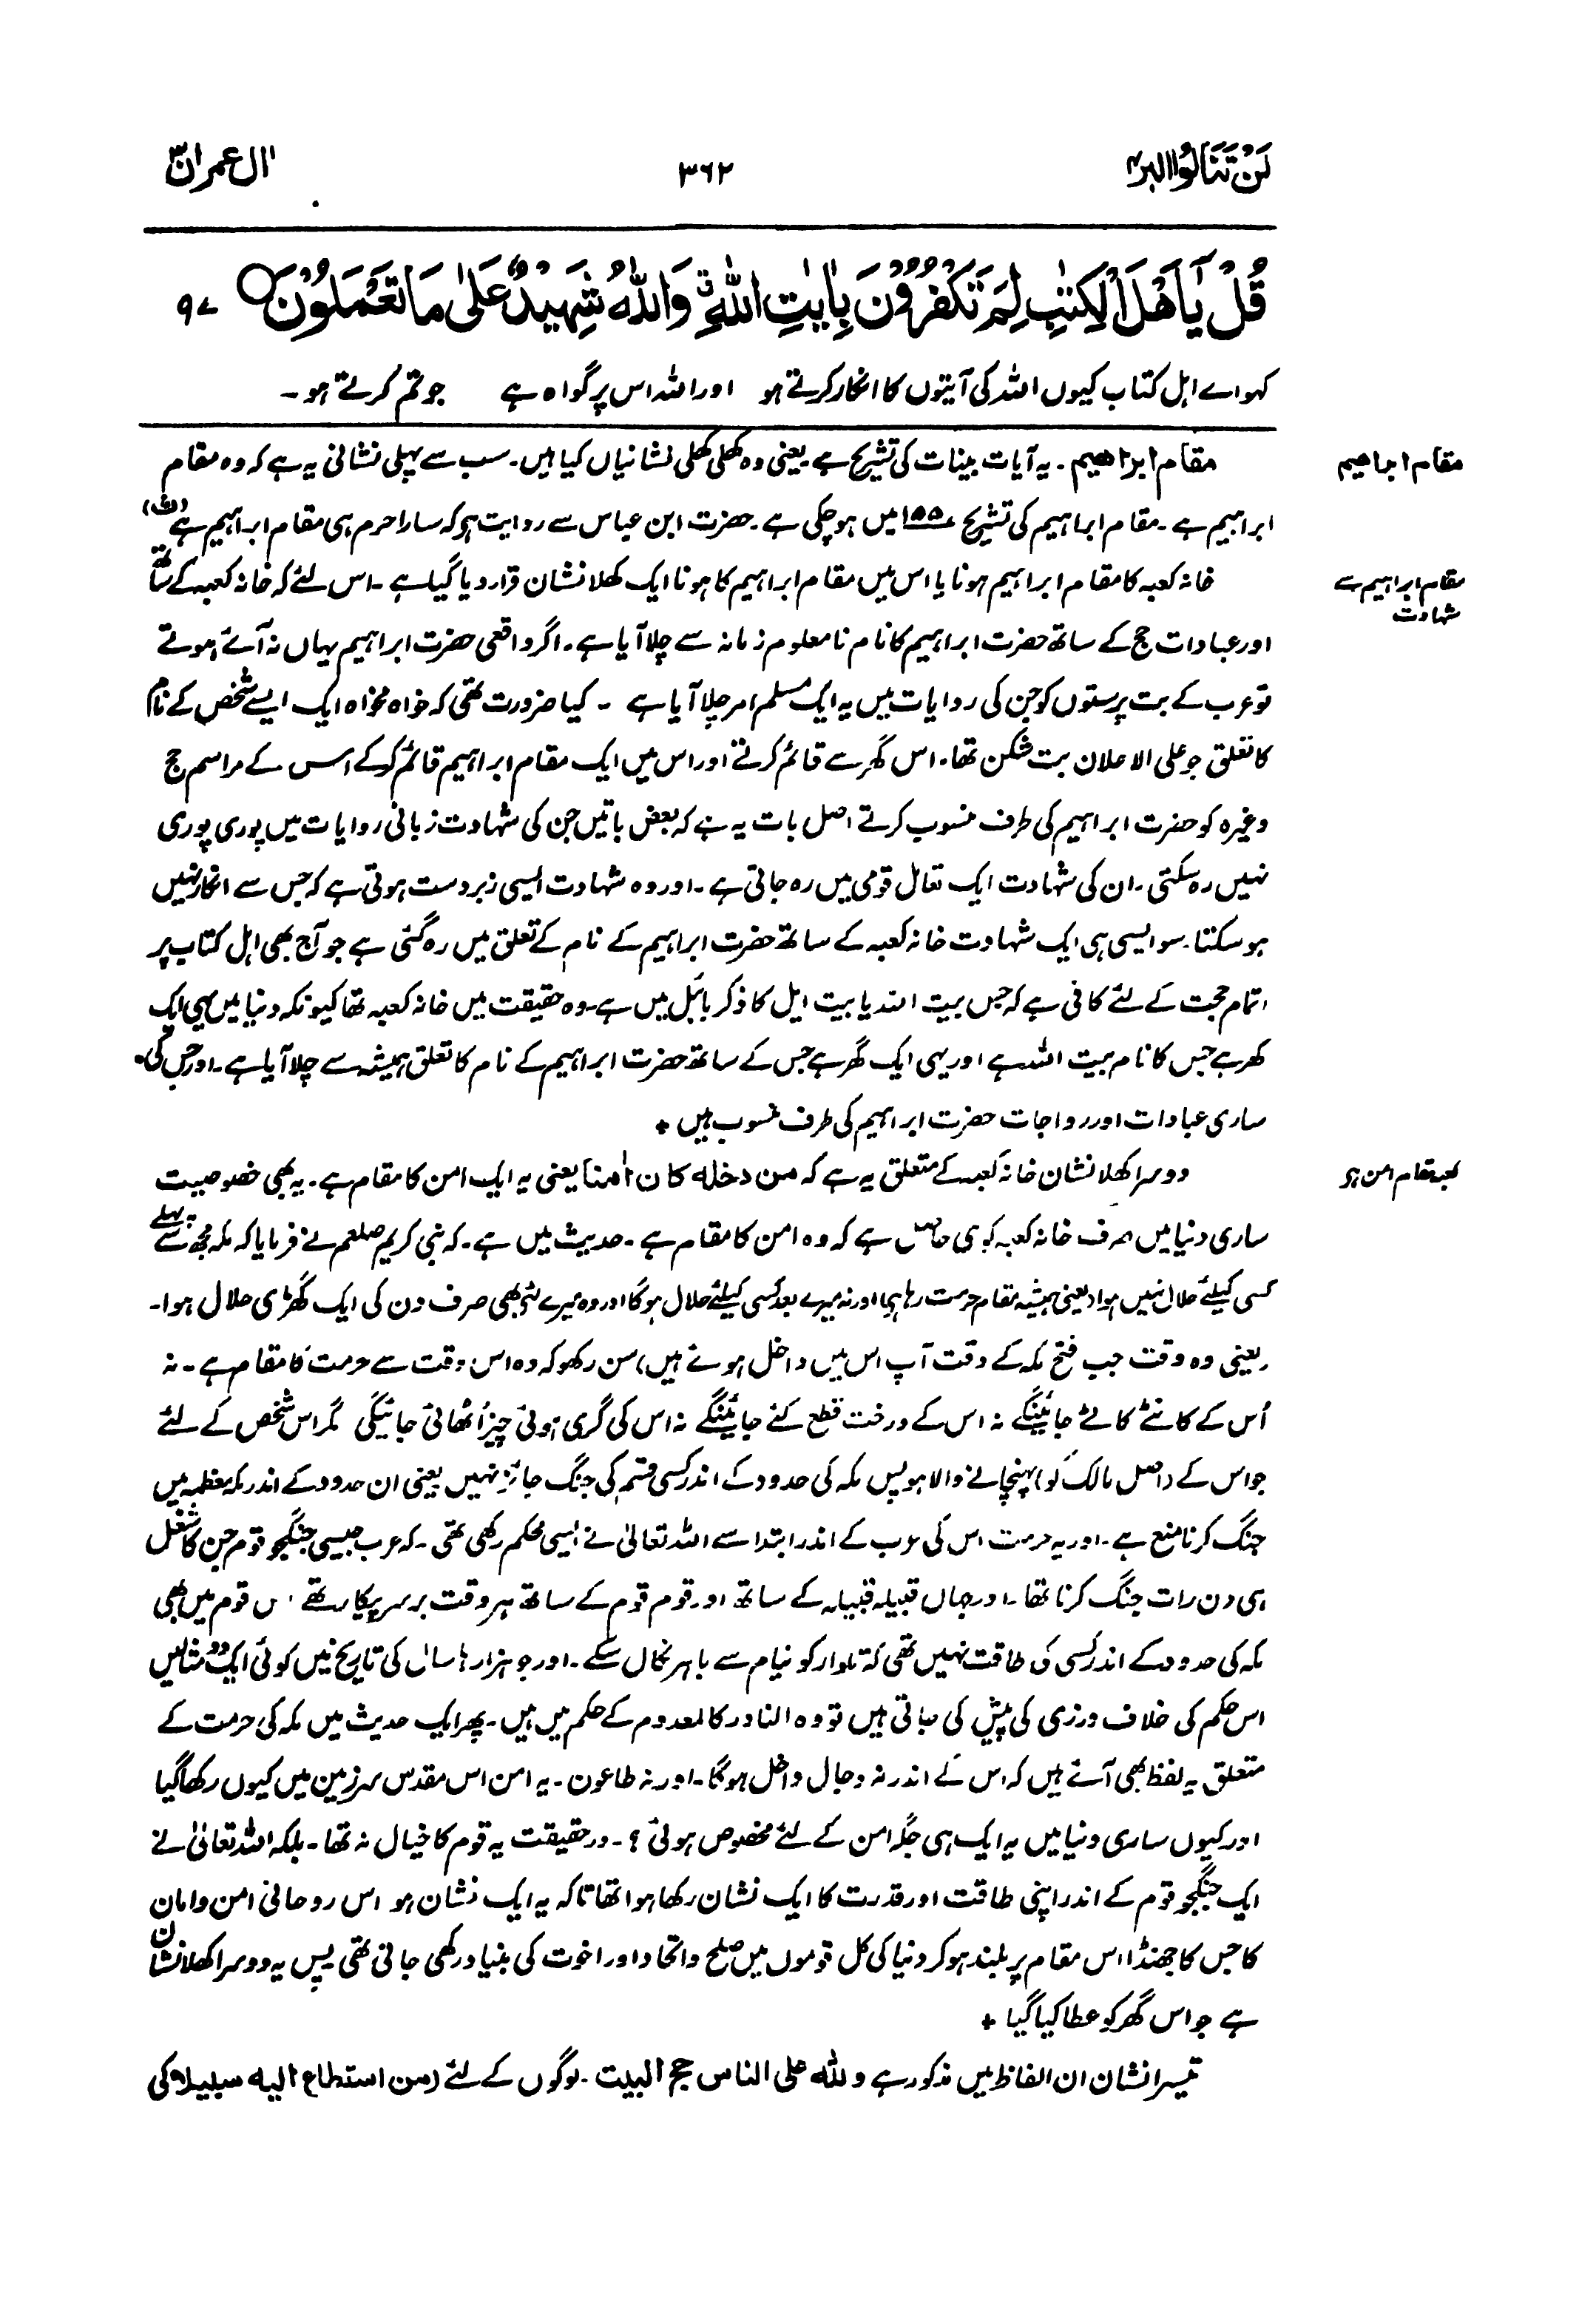 لَنْ تَنَالُوا البر ۴
۳۶۲
اٰل عمران ۳
قُلْ يٰٓاَهْلَ الْكِتٰبِ لِمَ تَكْفُرُوْنَ بِاٰيٰتِ اللّٰهِ ۖ وَاللّٰهُ شَهِيْدٌ عَلٰى مَا تَعْمَلُوْنَ ○ ۹۷
کہو اے اہل کتاب کیوں اللہ کی آیتوں کا انکار کرتے ہو اور اللہ اس پر گواہ ہے جو تم کرتے ہو ۔
مقام ابراھیم
مقام ابراھیم ۔ یہ آیات بینات کی تشریح ہے یعنی وہ کھلی کھلی نشانیاں کیا ہیں ۔ سب سے پہلی نشانی یہ ہے کہ وہ مقام
ابراہیم ہے ۔ مقام ابراہیم کی تشریح ۱۵۵ میں ہو چکی ہے ۔ حضرت ابن عباس سے روایت ہو کہ سارا حرم ہی مقام ابراہیم ہے (ث)
مقام ابراہیم سے
شہادت
خانہ کعبہ کا مقام ابراہیم ہونا یا اس میں مقام ابراہیم کا ہونا ایک کھلا نشان قرار دیا گیا ہے ۔ اس لئے کہ خانہ کعبہ کے ساتھ
اور عبادات حج کے ساتھ حضرت ابراہیم کا نام نامعلوم زمانہ سے چلا آیا ہے ۔ اگر واقعی حضرت ابراہیم یہاں نہ آئے ہوتے
تو عرب کے بت پرستوں کو جن کی روایات میں یہ ایک مسلم امر چلا آیا ہے ۔ کیا ضرورت تھی کہ خواہ مخواہ ایک ایسے شخص کے نام
کا تعلق جو علی الاعلان بت شکن تھا ۔ اس گھر سے قائم کرتے اور اس میں ایک مقام ابراہیم قائم کر کے اس کے مراسم حج
وغیرہ کو حضرت ابراہیم کی طرف منسوب کرتے اصل بات یہ ہے کہ بعض باتیں جن کی شہادت زبانی روایات میں پوری پوری
نہیں رہ سکتی ۔ ان کی شہادت ایک تعامل قومی میں رہ جاتی ہے ۔ اور وہ شہادت ایسی زبردست ہوتی ہے کہ جس سے انکار نہیں
ہو سکتا ۔ سو ایسی ہی ایک شہادت خانہ کعبہ کے ساتھ حضرت ابراہیم کے نام کے تعلق میں رہ گئی ہے جو آج بھی اہل کتاب پر
اتمام حجت کے لئے کافی ہے کہ جس بیت اللہ یا بیت ایل کا ذکر بائبل میں ہے ۔ وہ حقیقت میں خانہ کعبہ تھا کیونکہ دنیا میں یہی ایک
گھر ہے جس کا نام بیت اللہ ہے اور یہی ایک گھر ہے جس کے ساتھ حضرت ابراہیم کے نام کا تعلق ہمیشہ سے چلا آیا ہے ۔ اور جس کی
ساری عبادات اور رواجات حضرت ابراہیم کی طرف منسوب ہیں ٭
کعبہ مقام امن ہو
دوسرا کھلا نشان خانہ کعبہ کے متعلق یہ ہے کہ من دخله كان اٰمنا یعنی یہ ایک امن کا مقام ہے ۔ یہ بھی خصوصیت
ساری دنیا میں صرف خانہ کعبہ کو ہی حاصل ہے کہ وہ امن کا مقام ہے ۔ حدیث میں ہے ۔ کہ نبی کریم صلعم نے فرمایا کہ مکہ مجھ سے پہلے
کسی کیلئے حلال نہیں ہوا (یعنی ہمیشہ مقام حرمت رہا ہے) اور نہ میرے بعد کسی کیلئے حلال ہوگا اور وہ میرے لئے بھی صرف دن کی ایک گھڑی حلال ہوا ۔
(یعنی وہ وقت جب فتح مکہ کے وقت آپ اس میں داخل ہوئے ہیں) سن رکھو کہ وہ اس وقت سے حرمت کا مقام ہے ۔ نہ
اُس کے کانٹے کاٹے جائینگے نہ اس کے درخت قطع کئے جائینگے نہ اس کی گری ہوئی چیز اُٹھائی جائیگی مگر اس شخص کے لئے
جو اس کے (اصل مالک کو) پہنچانے والا ہو پس مکہ کی حدود کے اندر کسی قسم کی جنگ جائز نہیں یعنی ان حدود کے اندر مکہ معظمہ میں
جنگ کرنا منع ہے ۔ اور یہ حرمت اس کی عرب کے اندر ابتدا سے اللہ تعالیٰ نے ایسی محکم رکھی تھی ۔ کہ عرب جیسی جنگجو قوم جن کا شغل
ہی دن رات جنگ کرنا تھا ۔ اور جہاں قبیلہ قبیلہ کے ساتھ اور قوم قوم کے ساتھ ہر وقت برسر پیکار تھے قوم میں بھی
مکہ کی حدود کے اندر کسی کی طاقت نہیں تھی کہ تلوار کو نیام سے باہر نکال سکے ۔ اور جو ہزار ہا سال کی تاریخ میں کوئی ایک دو مثالیں
اس حکم کی خلاف ورزی کی پیش کی جاتی ہیں تو وہ النادر کالمعدوم کے حکم میں ہیں ۔ پھر ایک حدیث میں مکہ کی حرمت کے
متعلق یہ لفظ بھی آتے ہیں کہ اس کے اندر نہ دجال داخل ہوگا ۔ اور نہ طاعون ۔ یہ امن اس مقدس سرزمین میں کیوں رکھا گیا
اور کیوں ساری دنیا میں یہ ایک ہی جگہ امن کے لئے مخصوص ہوئی ؟ ۔ درحقیقت یہ قوم کا خیال نہ تھا ۔ بلکہ اللہ تعالیٰ نے
ایک جنگجو قوم کے اندر اپنی طاقت اور قدرت کا ایک نشان رکھا ہوا تھا تاکہ یہ ایک نشان ہو اس روحانی امن و امان
کا جس کا جھنڈا اس مقام پر بلند ہو کر دنیا کی کل قوموں میں صلح و اتحاد اور اخوت کی بنیاد رکھی جاتی تھی پس یہ دوسرا کھلا نشان
ہے جو اس گھر کو عطا کیا گیا ٭
تیسرا نشان ان الفاظ میں مذکور ہے و للہ علی الناس حج البیت ۔ لوگوں کے لئے (من استطاع الیہ سبیلا) کی